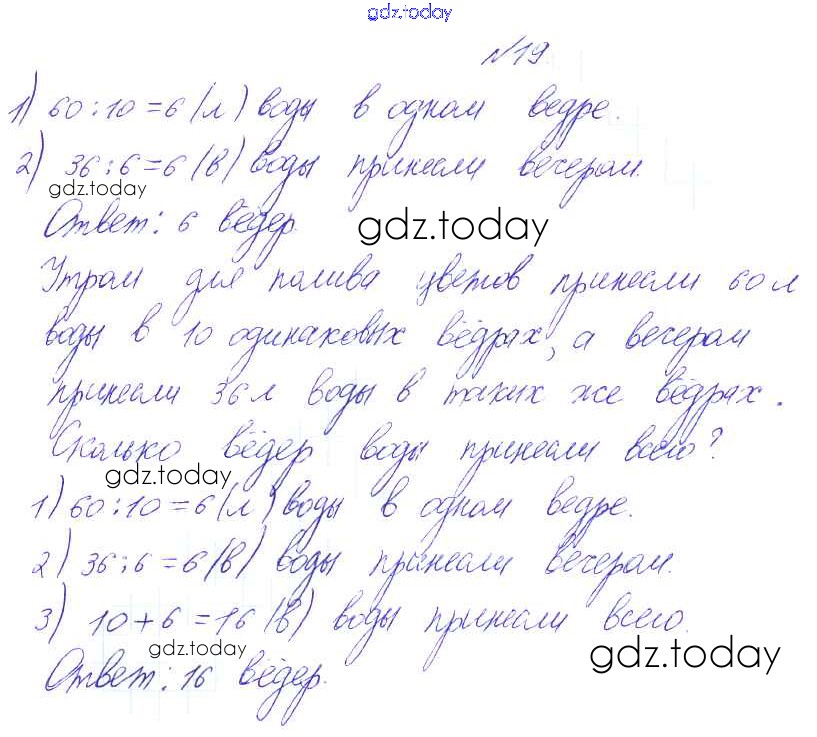 gdz.today
№19
1) 60:10=6 (л) воды в одном ведре.
2) 36:6=6 (в) воды принесли вечером.
gdz.today
Ответ: 6 вёдер.
gdz.today
Утром для полива цветов принесли 60 л
воды в 10 одинаковых вёдрах, а вечером
принесли 36 л воды в таких же вёдрах.
Сколько вёдер воды принесли всего?
gdz.today
1) 60:10=6 (л) воды в одном ведре.
2) 36:6=6 (в) воды принесли вечером.
3) 10+6=16 (в) воды принесли всего.
gdz.today
gdz.today
Ответ: 16 вёдер.